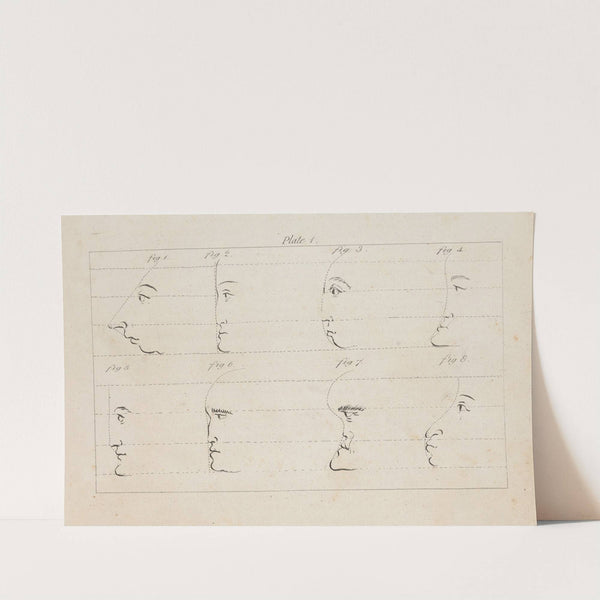 Plate 1.
fig 1 fig 2 fig 3. fig 4
fig 5 fig 6 fig 7 fig 8